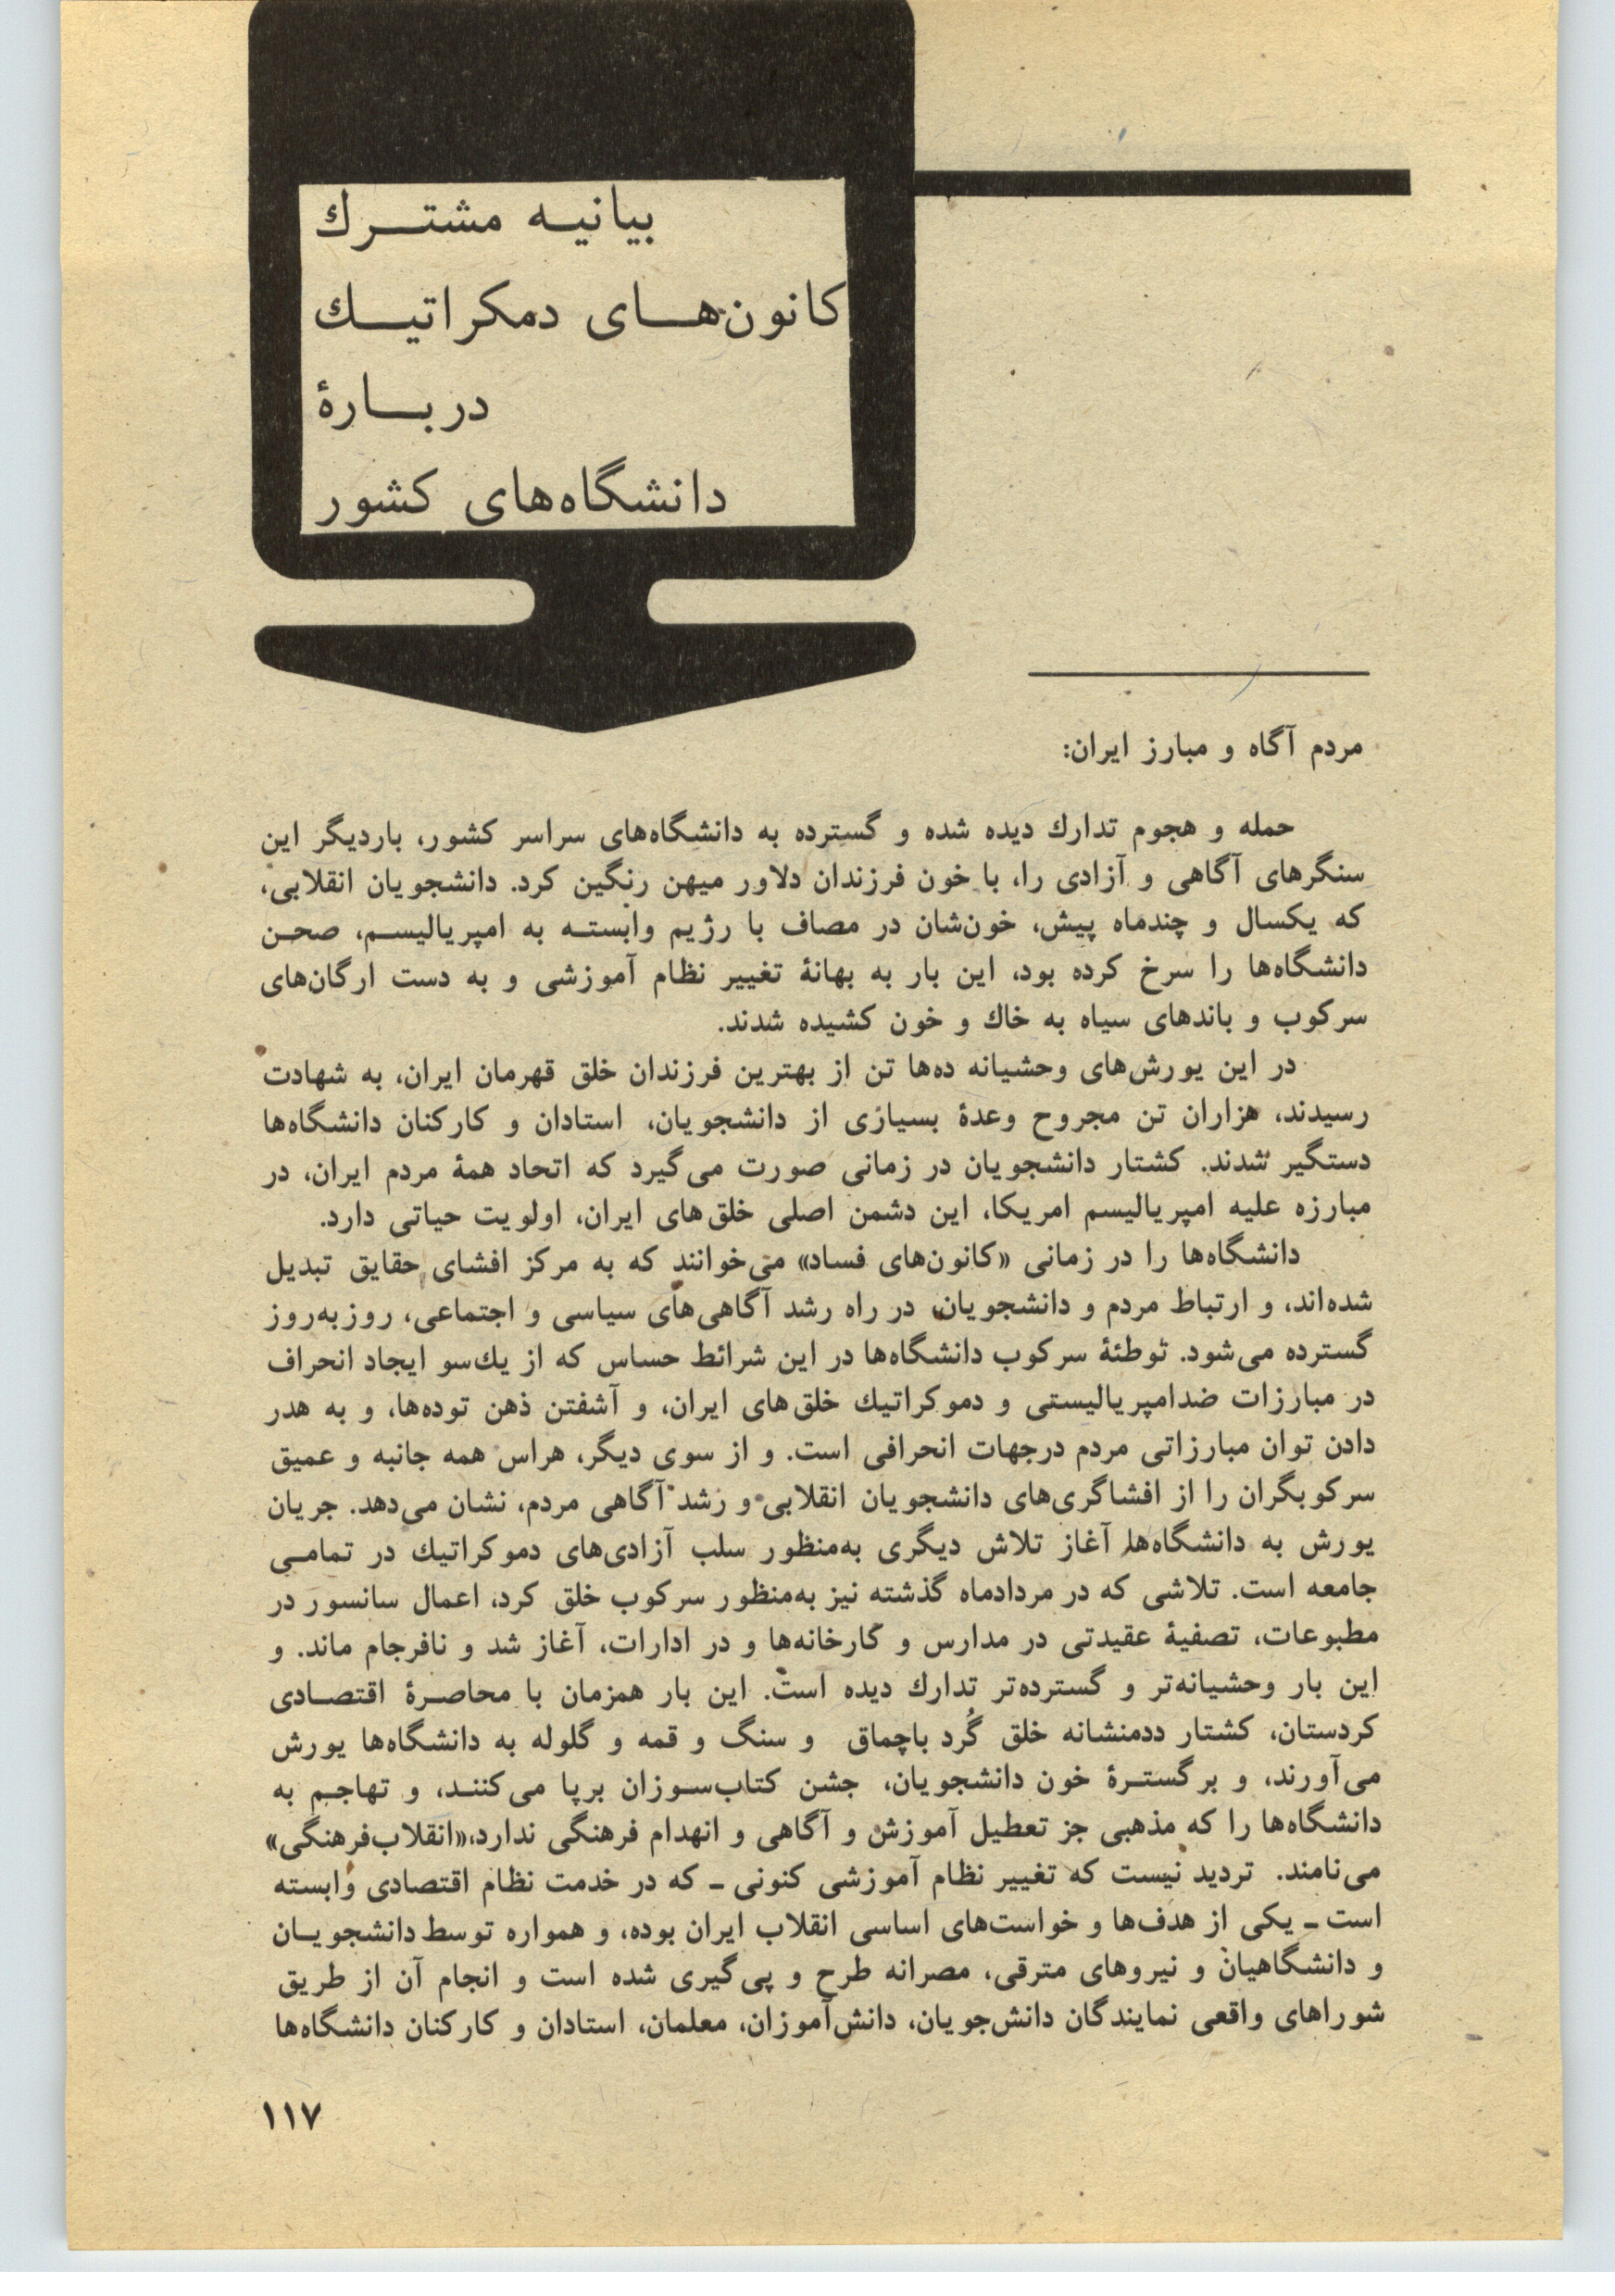 بیانیـه مشتـــرك
کانون‌هـــای دمکراتیـــك
دربـــارۀ
دانشگاه‌های کشور
مردم آگاه و مبارز ایران:
حمله و هجوم تدارك دیده شده و گسترده به دانشگاه‌های سراسر کشور، باردیگر این
سنگرهای آگاهی و آزادی را، با خون فرزندان دلاور میهن رنگین کرد. دانشجویان انقلابی،
که یکسال و چندماه پیش، خون‌شان در مصاف با رژیم وابستـه به امپریالیسـم، صحـن
دانشگاه‌ها را سرخ کرده بود، این بار به بهانۀ تغییر نظام آموزشی و به دست ارگان‌های
سرکوب و باندهای سیاه به خاك و خون کشیده شدند.
در این یورش‌های وحشیانه ده‌ها تن از بهترین فرزندان خلق قهرمان ایران، به شهادت
رسیدند، هزاران تن مجروح وعدۀ بسیاری از دانشجویان، استادان و کارکنان دانشگاه‌ها
دستگیر شدند. کشتار دانشجویان در زمانی صورت می‌گیرد که اتحاد همۀ مردم ایران، در
مبارزه علیه امپریالیسم امریکا، این دشمن اصلی خلق‌های ایران، اولویت حیاتی دارد.
دانشگاه‌ها را در زمانی «کانون‌های فساد» می‌خوانند که به مرکز افشای حقایق تبدیل
شده‌اند، و ارتباط مردم و دانشجویان در راه رشد آگاهی‌های سیاسی و اجتماعی، روزبه‌روز
گسترده می‌شود. توطئۀ سرکوب دانشگاه‌ها در این شرائط حساس که از یك‌سو ایجاد انحراف
در مبارزات ضدامپریالیستی و دموکراتیك خلق‌های ایران، و آشفتن ذهن توده‌ها، و به هدر
دادن توان مبارزاتی مردم درجهات انحرافی است. و از سوی دیگر، هراس همه جانبه و عمیق
سرکوبگران را از افشاگری‌های دانشجویان انقلابی و رشد آگاهی مردم، نشان می‌دهد. جریان
یورش به دانشگاه‌ها آغاز تلاش دیگری به‌منظور سلب آزادی‌های دموکراتیك در تمامـی
جامعه است. تلاشی که در مردادماه گذشته نیز به‌منظور سرکوب خلق کرد، اعمال سانسور در
مطبوعات، تصفیۀ عقیدتی در مدارس و کارخانه‌ها و در ادارات، آغاز شد و نافرجام ماند. و
این بار وحشیانه‌تر و گسترده‌تر تدارك دیده است. این بار همزمان با محاصـرۀ اقتصـادی
کردستان، کشتار ددمنشانه خلق کُرد باچماق و سنگ و قمه و گلوله به دانشگاه‌ها یورش
می‌آورند، و برگستـرۀ خون دانشجویان، جشن کتاب‌سـوزان برپا می‌کننـد، و تهاجـم به
دانشگاه‌ها را که مذهبی جز تعطیل آموزش و آگاهی و انهدام فرهنگی ندارد،«انقلاب‌فرهنگی»
می‌نامند. تردید نیست که تغییر نظام آموزشی کنونی ـ که در خدمت نظام اقتصادی وابسته
است ـ یکی از هدف‌ها و خواست‌های اساسی انقلاب ایران بوده، و همواره توسط دانشجویـان
و دانشگاهیان و نیروهای مترقی، مصرانه طرح و پی‌گیری شده است و انجام آن از طریق
شوراهای واقعی نمایندگان دانش‌جویان، دانش‌آموزان، معلمان، استادان و کارکنان دانشگاه‌ها
۱۱۷